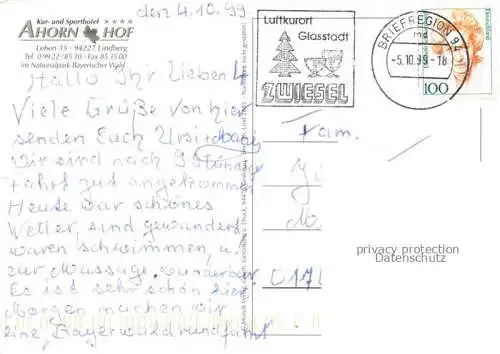 Kur- und Sporthotel
AHORN HOF
Lohen 35 - 94227 Lindberg
Tel. 09922/85 30 - Fax 85 35 00
im Nationalpark Bayerischer Wald
den 4.10.99
Hallo Ihr Lieben 4
Viele Grüße von hier
senden Euch Ursi +
Wir sind nach 9 Stündiger
Fahrt gut angekommen
Heute war schönes
Wetter, sind gewandert
waren schwimmen, u.
zur Massage, wunderbar
Es ist sehr schön hier
Morgen machen wir
eine Bayerwaldrundfahrt
Luftkurort
Glasstadt
ZWIESEL
BRIEFREGION 94
md
-5.10.99-18
100
Fam.
privacy protection
Datenschutz
017